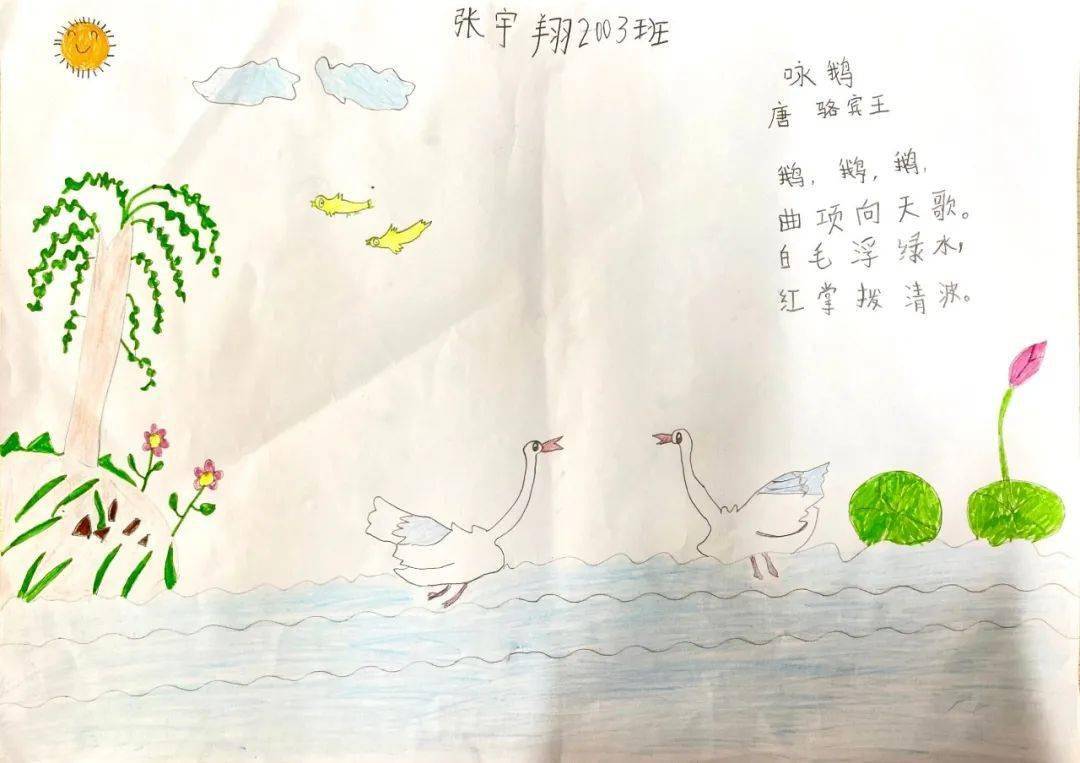 张宇翔2003班
咏鹅
唐 骆宾王
鹅，鹅，鹅，
曲项向天歌。
白毛浮绿水，
红掌拨清波。